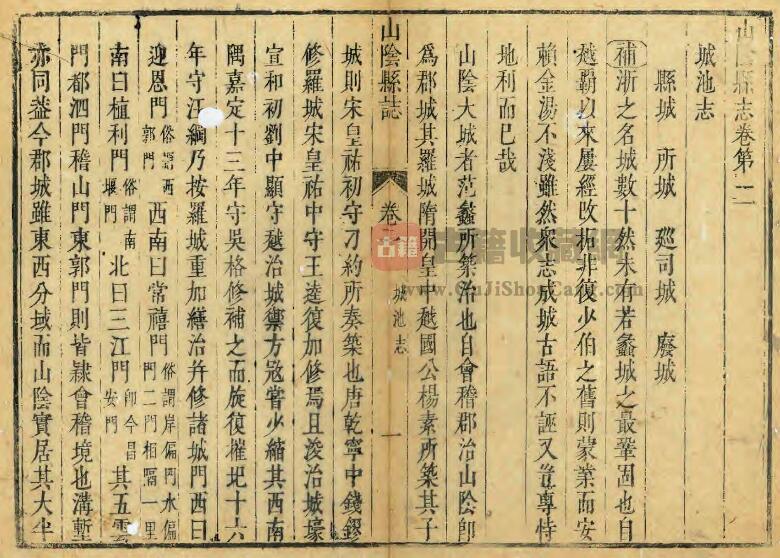 山陰縣志卷第二
城池志
縣城 所城 廵司城 廢城
補浙之名城數十然未有若蠡城之最鞏固也自
越霸以來屢經攺拓非復少伯之舊則蒙業而安
賴金湯不淺雖然衆志成城古語不誣又豈專恃
地利而已哉
山陰大城者范蠡所築治也自會稽郡治山陰卽
爲郡城其羅城隋開皇中越國公楊素所築其子
山陰縣誌
卷二
城池志
一
城則宋皇祐初守刁約所奏築也唐乾寧中錢鏐
修羅城宋皇祐中守王逵復加修焉且浚治城壕
宣和初劉中顯守越治城禦方寇嘗少縮其西南
隅嘉定十三年守吳格修補之而旋復摧圮十六
年守汪綱乃按羅城重加繕治幷修諸城門西曰
迎恩門俗謂西郭門西南曰常禧門俗謂岸偏門水偏門二門相隔一里
南曰植利門俗謂南堰門北曰三江門卽今昌安門其五雲
門都泗門稽山門東郭門則皆隷會稽境也溝塹
亦同葢今郡城雖東西分域而山陰實居其大半
古籍
古籍收藏网
www.GuJiShouCang.com